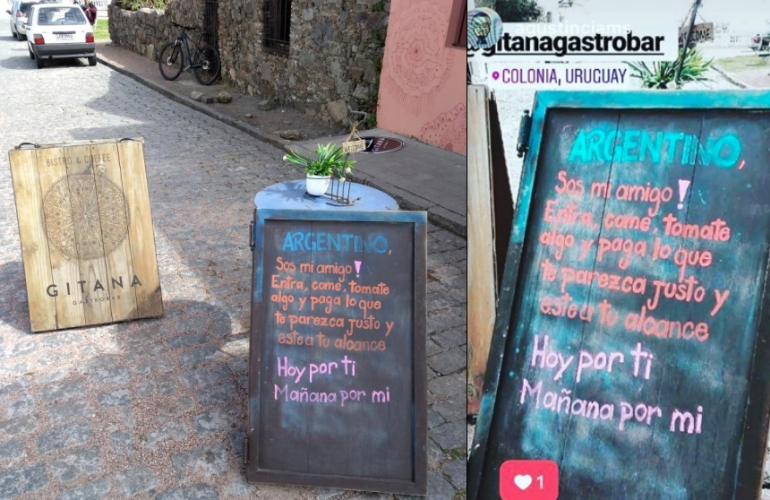 BISTRO & COFFEE
GITANA
GASTROBAR
ARGENTINO,
Sos mi amigo!
Entra, comé, tomate
algo y paga lo que
te parezca justo y
este a tu alcance
Hoy por ti
Mañana por mi
agustinciamr
@gitanagastrobar
COLONIA, URUGUAY
ARGENTINO,
Sos mi amigo!
Entra, comé, tomate
algo y paga lo que
te parezca justo y
este a tu alcance
Hoy por ti
Mañana por mi
1